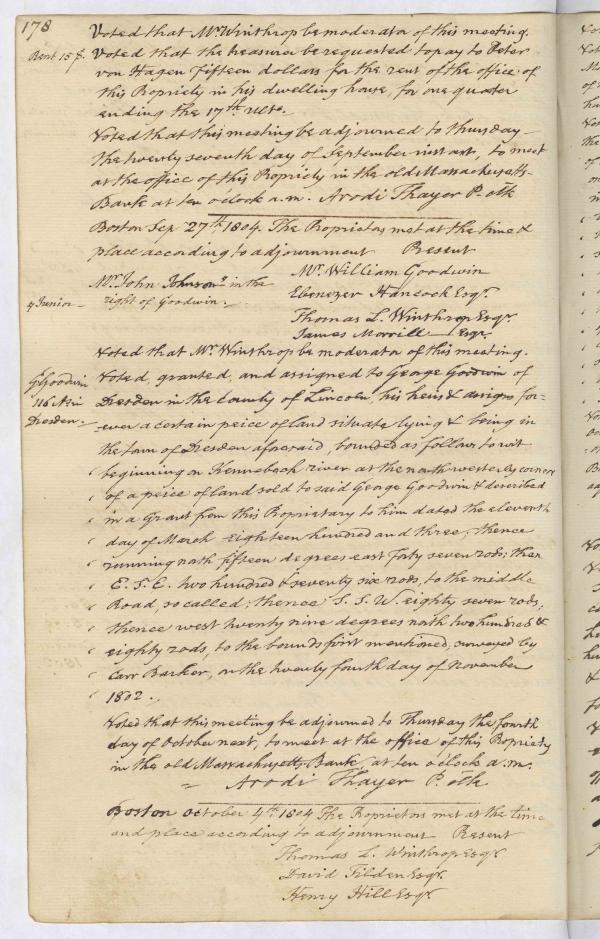 178
Voted that Mr Winthrop be moderator of this meeting.
Rent 15 $. Voted that the treasurer be requested to pay to Peter
von Hagen Fifteen dollars for the rent of the office of
this Propriety in his dwelling house, for one quarter
ending the 17th ulto.
Voted that this meeting be adjourned to thursday
the twenty seventh day of September instant, to meet
at the office of this Propriety in the old Massachusetts
Bank at ten o'clock a.m. Arodi Thayer P. clk
Boston Sep 27th 1804. The Proprietors met at the time &
place according to adjournment Present
Mr. William Goodwin
Mr. John Johnson + in the
Ebenezer Hancock Esqr.
+ Junior - right of Goodwin. -
Thomas L. Winthrop Esqr.
James Morrill Esqr.
Voted that Mr. Winthrop be moderator of this meeting.
G. Goodwin Voted, granted, and assigned to George Goodwin of
116 A. in Dresden in the County of Lincoln, his heirs & assigns for-
Dresden. ever a certain peice of land situate lying & being in
the town of Dresden aforesaid, bounded as follows to wit
beginning on Kennebeck river at the north westerly corner
of a peice of land sold to said George Goodwin & described
in a Grant from this Propriatary to him dated the eleventh
day of March eighteen hundred and three; thence
running north fifteen degrees east forty seven rods; then
E. S. E. two hundred & seventy six rods, to the middle
Road, so called; thence S. S. W. eighty seven rods,
thence west twenty nine degrees north two hundred &
eighty rods, to the bounds first mentioned, surveyed by
Carr Barker, on the twenty fourth day of November
1802.
Voted that this meeting be adjourned to Thursday the fourth
day of October next, to meet at the office of this Propriety
in the old Massachusetts Bank, at ten o'clock a.m.
Arodi Thayer P. clk
Boston October 4th 1804 The Proprietors met at the time
and place according to adjournment Present
Thomas L. Winthrop Esqr
David Tilden Esqr.
Henry Hill Esqr.